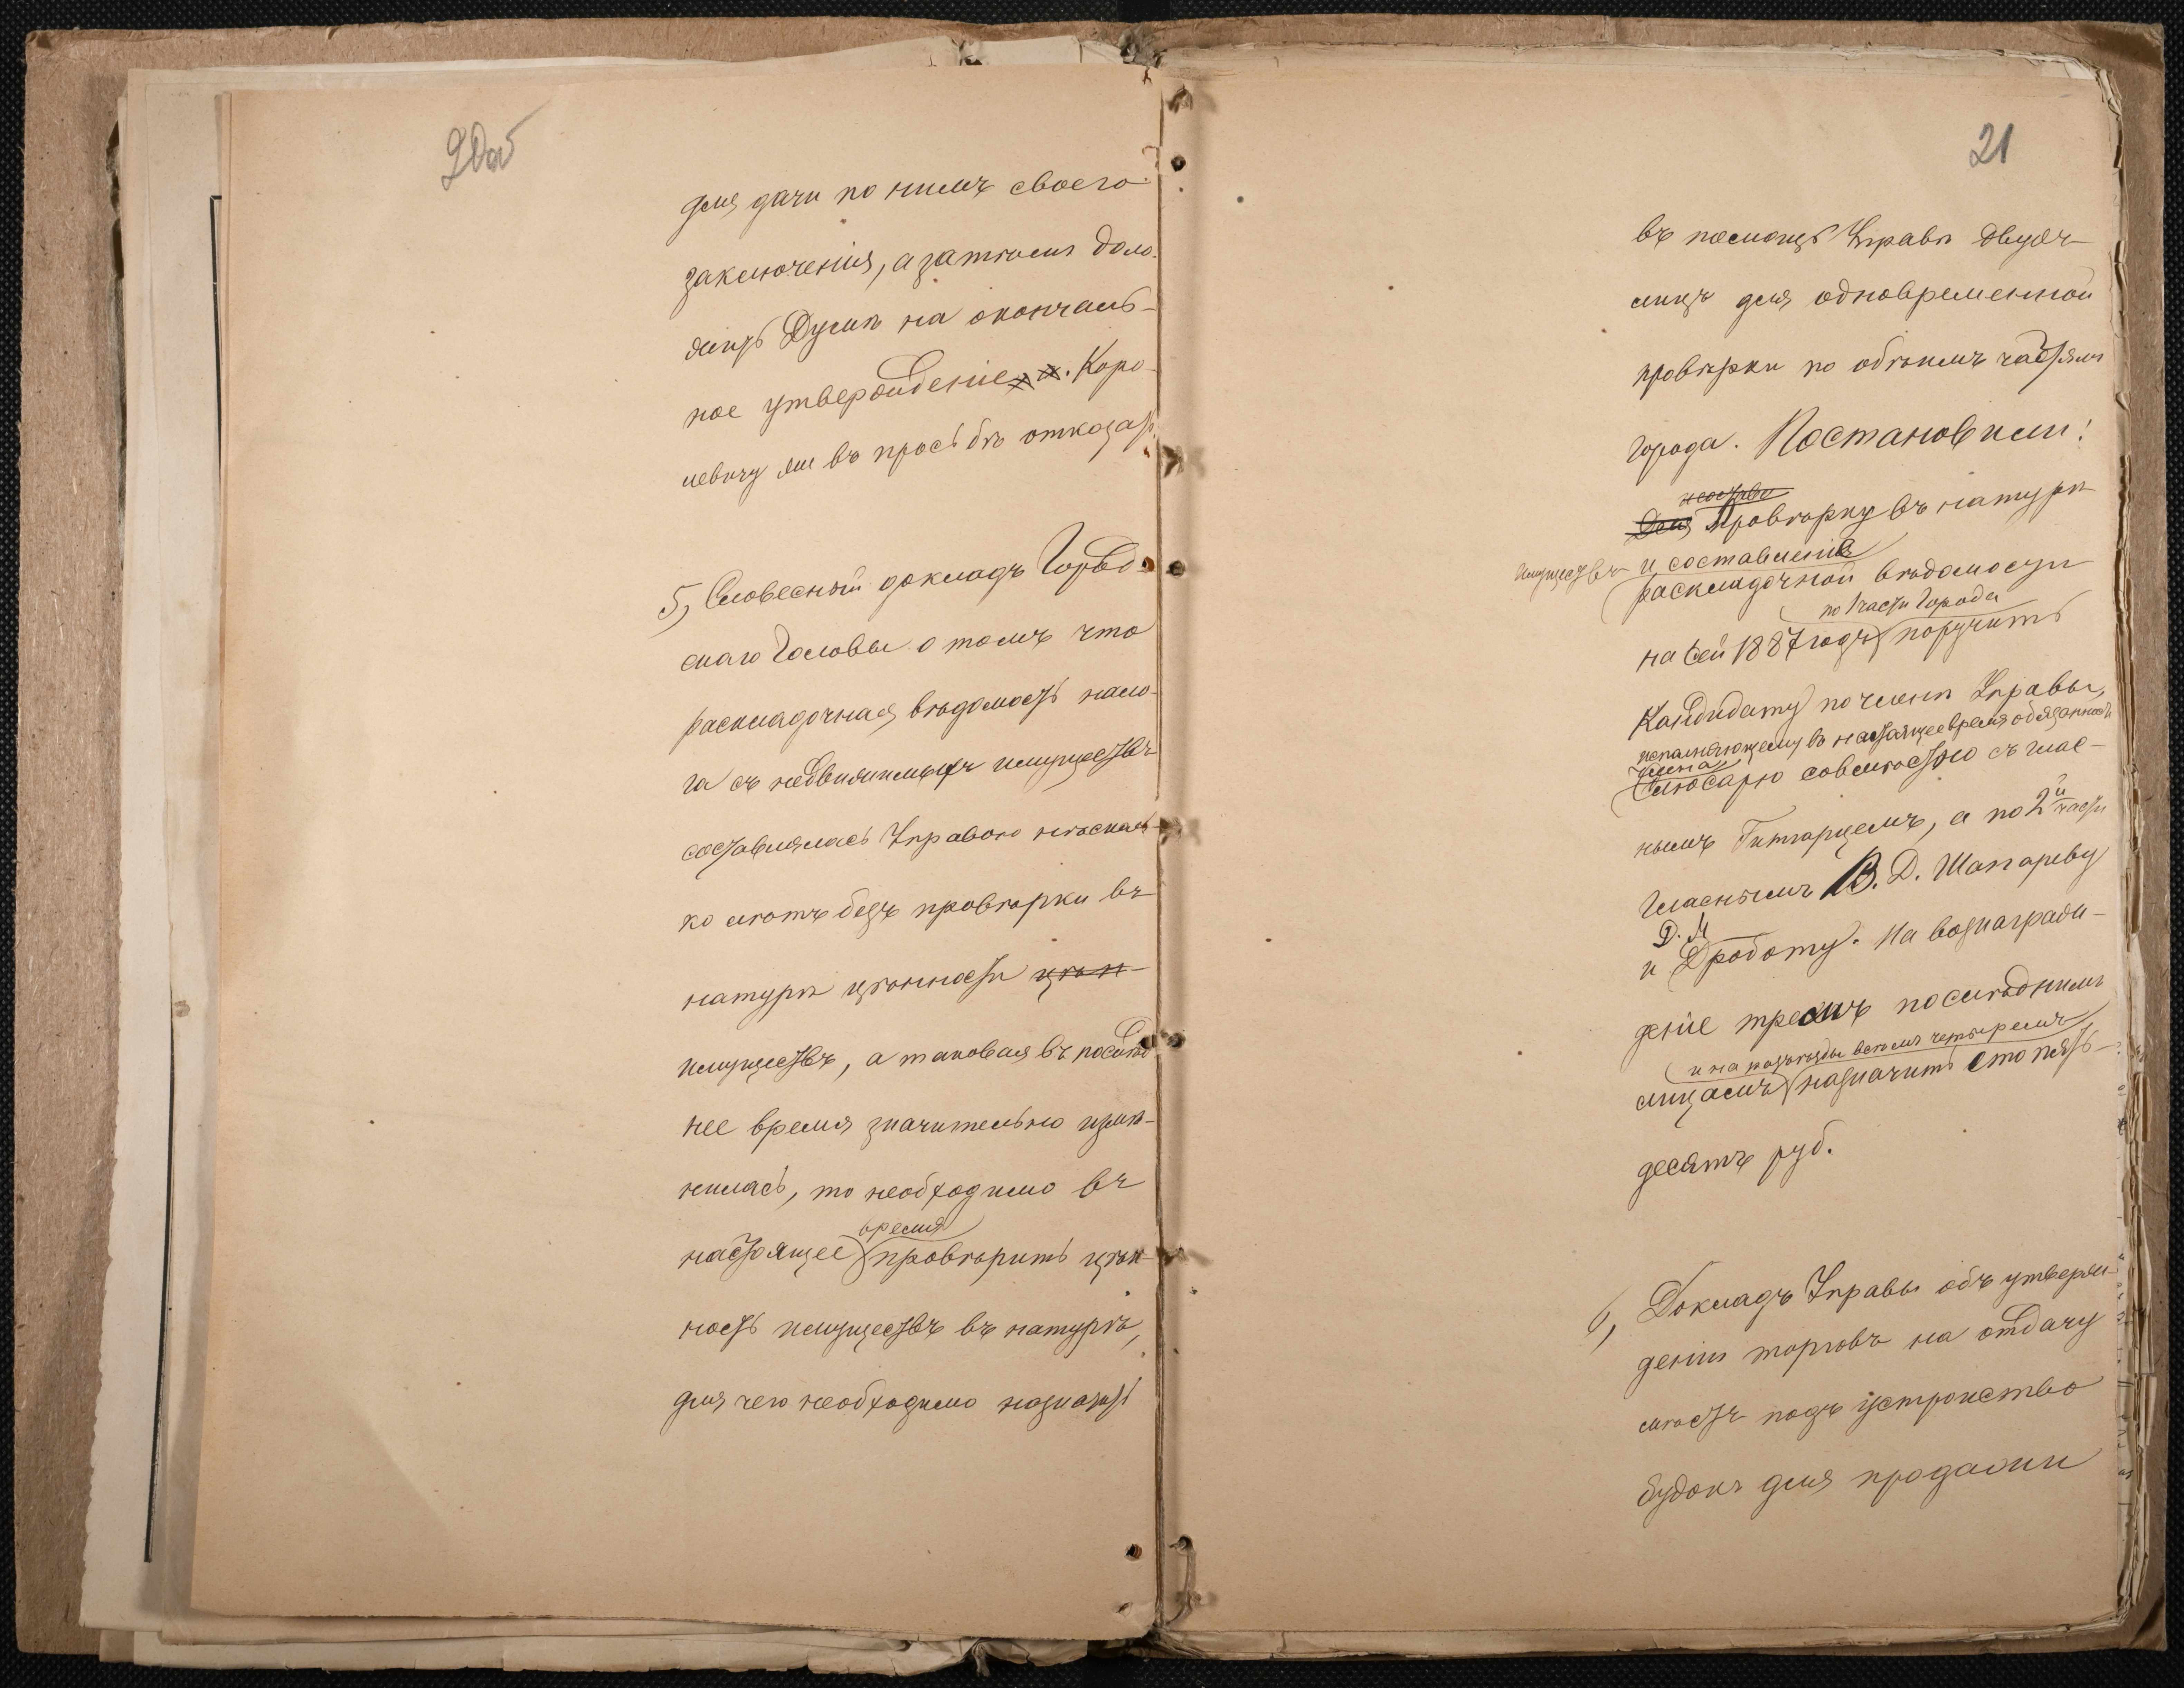 20об
для дачи по нимъ своего
заключенія, а затѣмъ доло-
жить Думѣ на окончатель-
ное утвержденіе. Коро-
левичу же въ просьбѣ отказать.
5, Словесный докладъ Город-
скаго Головы о томъ что
раскладочная вѣдомость нало-
га съ недвижимыхъ имуществъ
составлялась Управою нѣсколь-
ко лѣтъ безъ провѣрки въ
натурѣ цѣнности цѣнн
имуществъ, а таковая въ послѣд
нее время значительно измѣ-
нилась, то необходимо въ
время
настоящее провѣрить цѣн
ность имуществъ въ натурѣ,
для чего необходимо назначить
21
въ помощь Управѣ двухъ
лицъ для одновременной
провѣрки по обѣимъ частямъ
города. Постановили:
Для Провѣрку въ натурѣ
имуществъ и составленіе
раскладочной вѣдомости
по 1 части Города
на сей 1887 годъ поручить
Кандидату по члене Управы,
исполняющему въ настоящее время обязанность
члена
Слюсарю совмѣстно съ глас-
нымъ Гитарцемъ, а по 2й части
Гласнымъ В. Д. Шапареву
Д. М
и Дроботу. На вознагражд-
деніе тремъ послѣднимъ
и на разъѣзды всѣмъ четыремъ
лицамъ назначить сто пять-
десятъ руб.
6, Докладъ Управы объ утверж-
деніи торговъ на отдачу
мѣстъ подъ устройство
будокъ для продажи